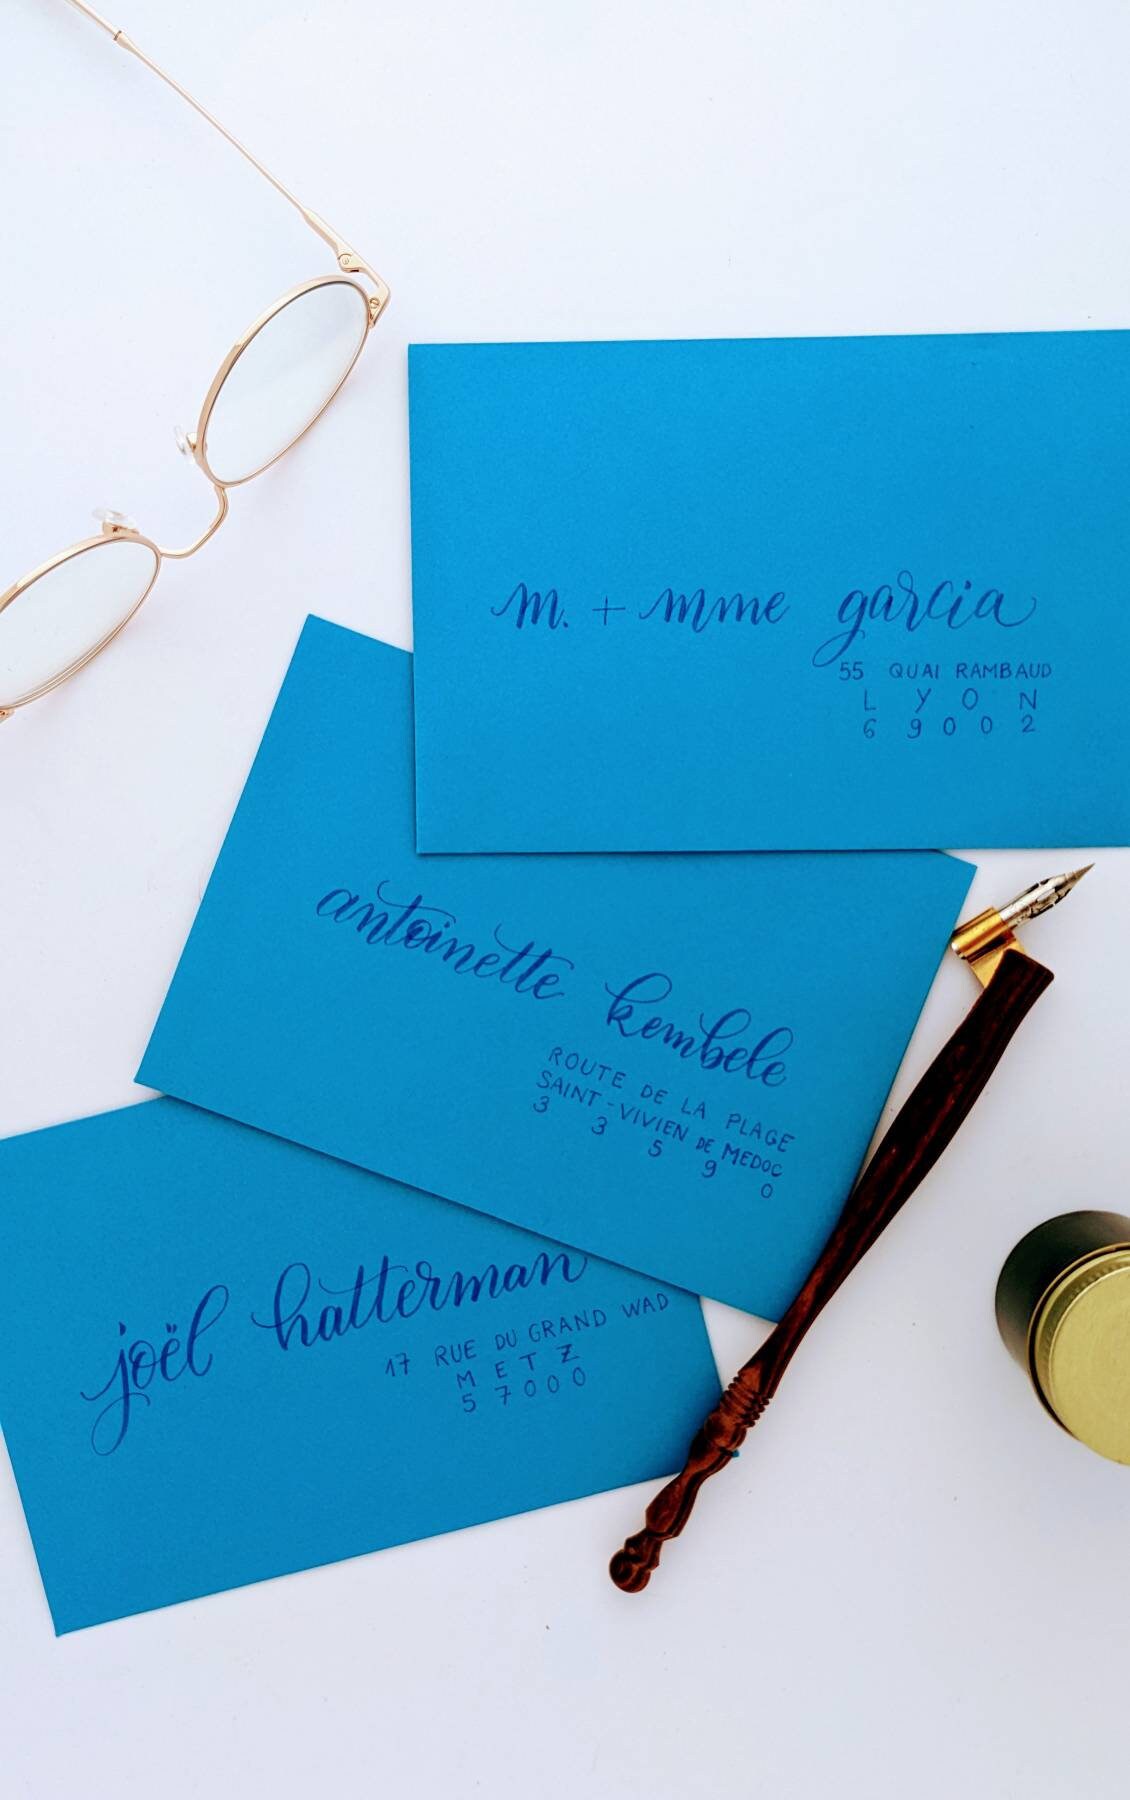 m. + mme garcia
55 QUAI RAMBAUD
LYON
69002
antoinette kembele
ROUTE DE LA PLAGE
SAINT-VIVIEN DE MEDOC
33590
joël hatterman
17 RUE DU GRAND WAD
METZ
57000